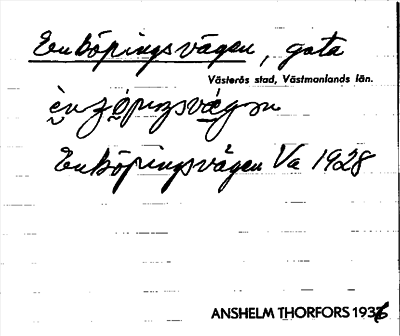 Enköpingsvägen, gata
Västerås stad, Västmanlands län.
Enköpingsvägen Va 1928
ANSHELM THORFORS 1936